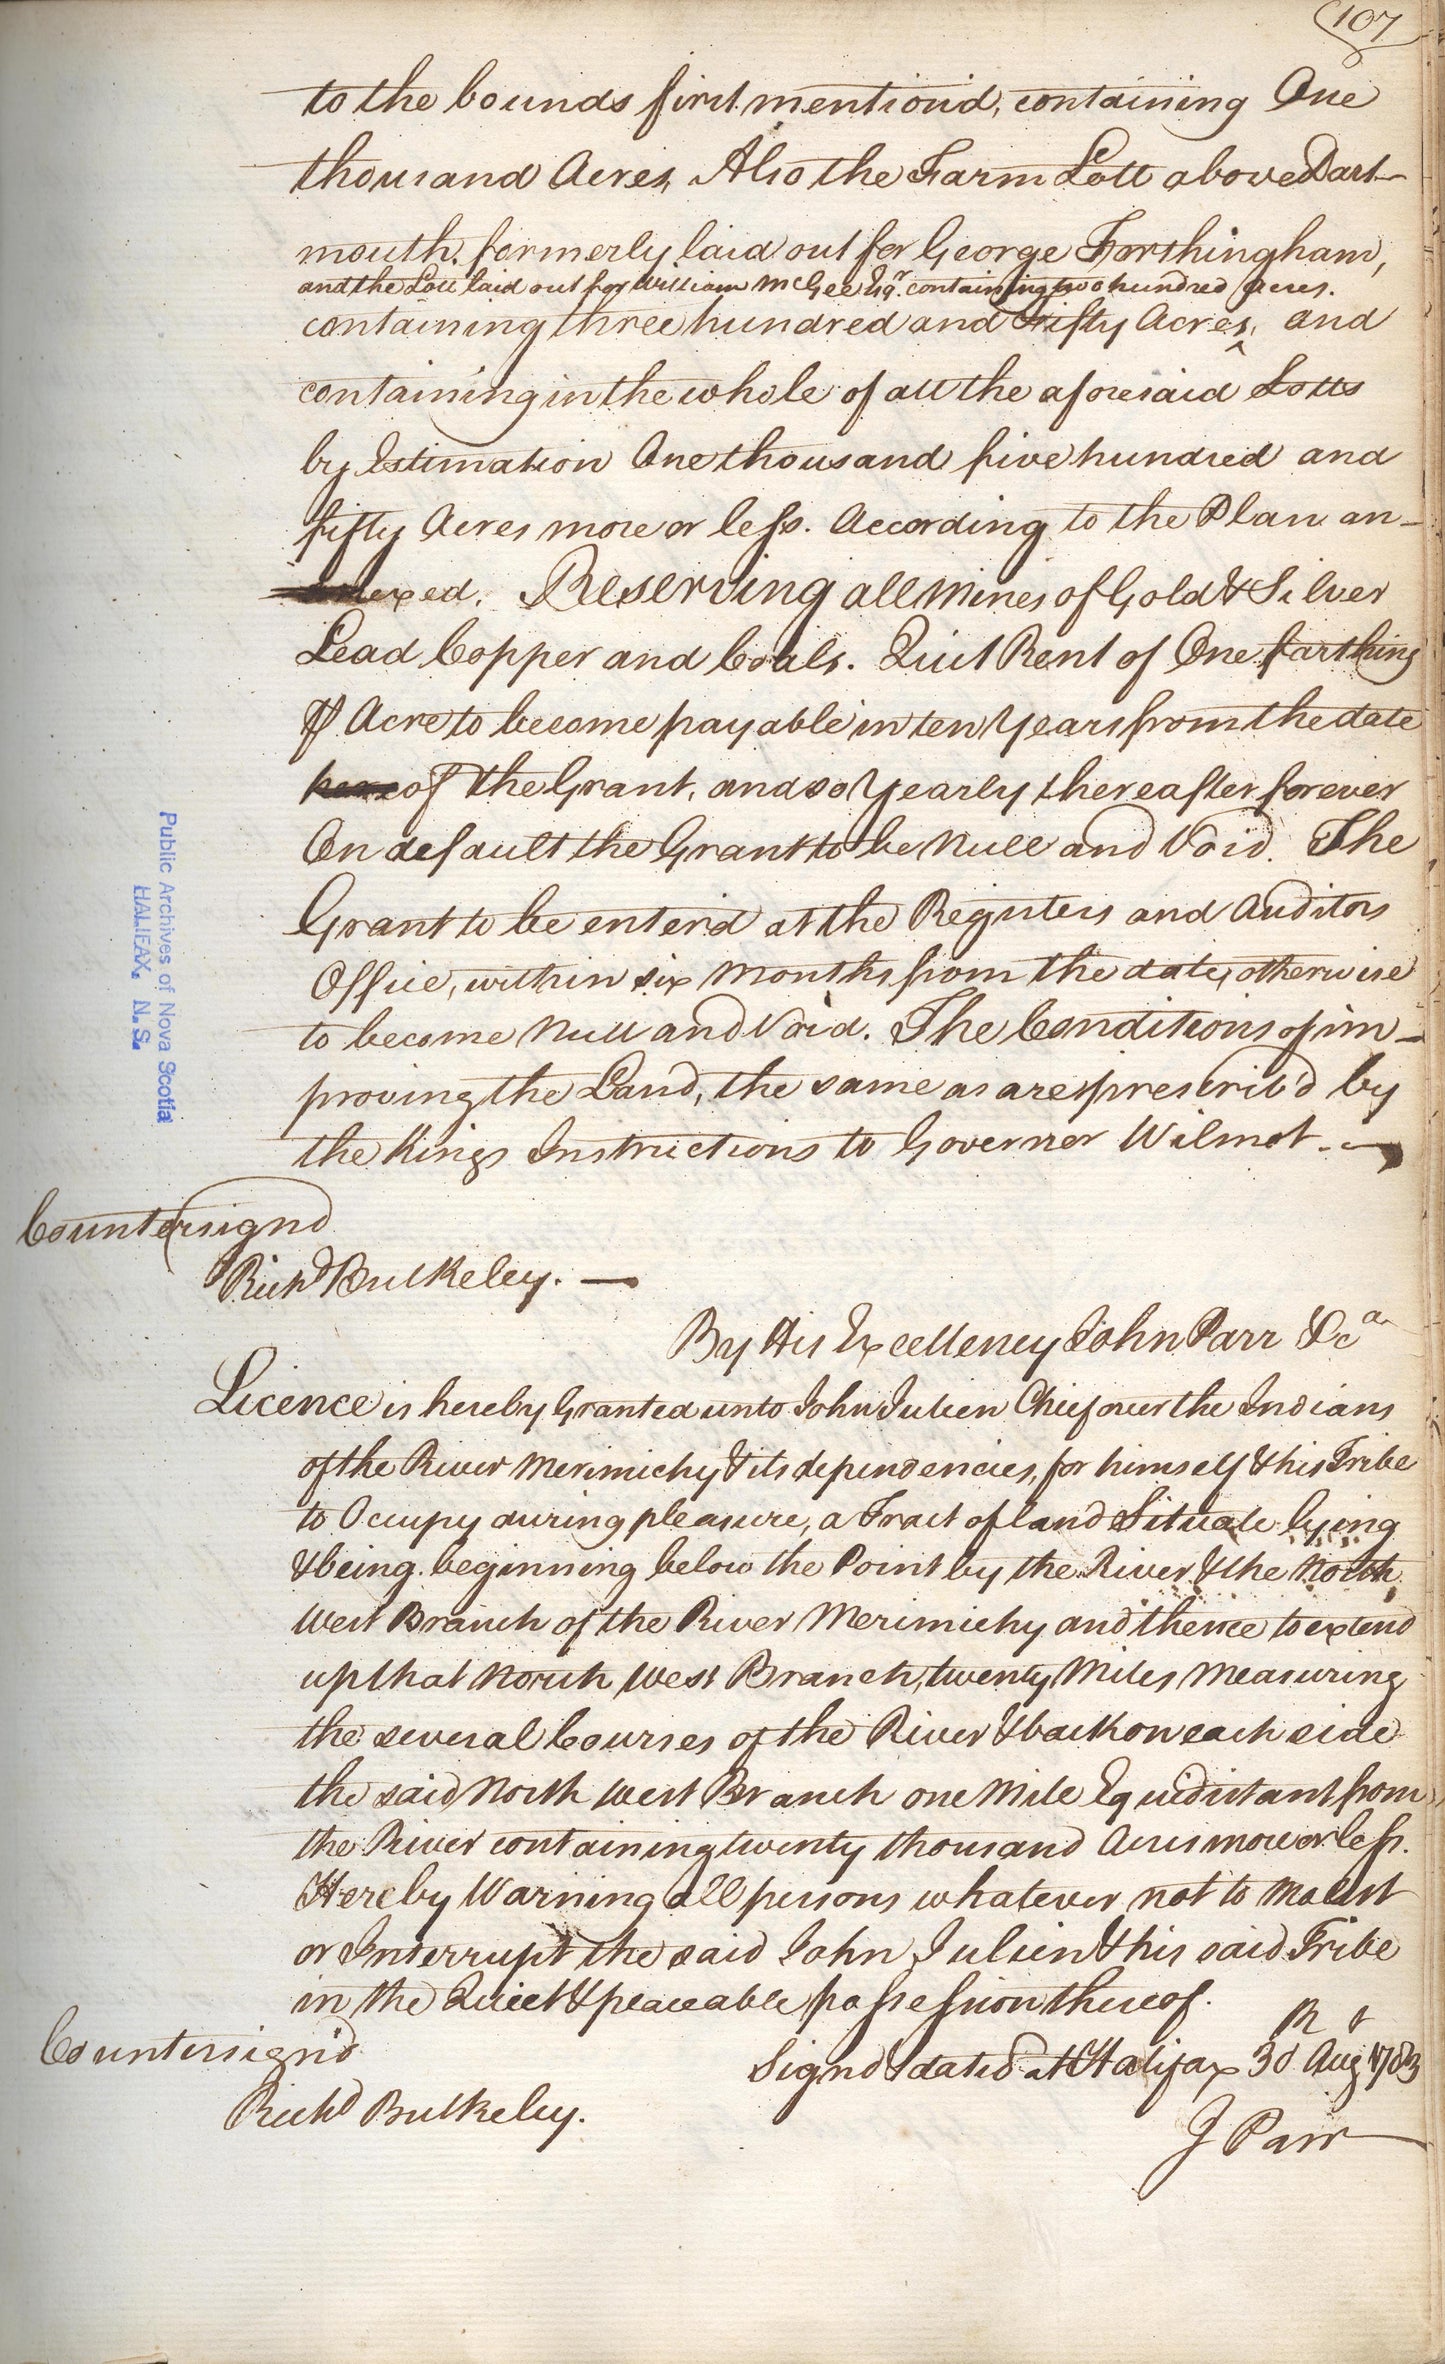 107
to the bounds first mentiond, containing One
thousand Acres, Also the Farm Lott above Dart-
mouth, formerly laid out for George Forthingham,
and the Lott laid out for William McGee Esqr. containing two hundred Acres.
containing three hundred and Fifty Acres, ^ and
containing in the whole of all the aforesaid Lotts
by Estimation One thousand five hundred and
fifty Acres more or less. According to the Plan an-
nexed. Reserving all Mines of Gold & Silver
Lead Copper and Coals. Quit Rent of One farthing
P Acre to become payable in ten Years from the date
hereof the Grant, and so Yearly thereafter forever
On default the Grant to be Null and Void. The
Grant to be enterd at the Registers and Auditors
Office, within six Months from the date, otherwise
to become Null and Void. The Conditions of im-
proving the Land, the same as are prescrib'd by
the Kings Instructions to Governor Wilmot.
Countersignd
Richd Bulkeley.
By His Excellency John Parr &ca
Licence is hereby Granted unto John Julien Chief over the Indians
of the River Merimichy & its dependencies, for himself & his Tribe
to Occupy during pleasure, a Tract of land Situate lying
& being. beginning below the Point by the River & the North
West Branch of the River Merimichy and thence to extend
up that North West Branch, twenty Miles Measuring
the several Courses of the River & back on each side
the said North West Branch one Mile Equidistant from
the River containing twenty thousand Acres more or less.
Hereby Warning all persons whatever not to Molest
or Interrupt the said John Julien & his said Tribe
in the Quiet & peaceable possession thereof.
Countersign'd
Signd & dated at Halifax 30 Aug 1783
Richd Bulkeley.
J Parr
Public Archives of Nova Scotia
HALIFAX, N. S.